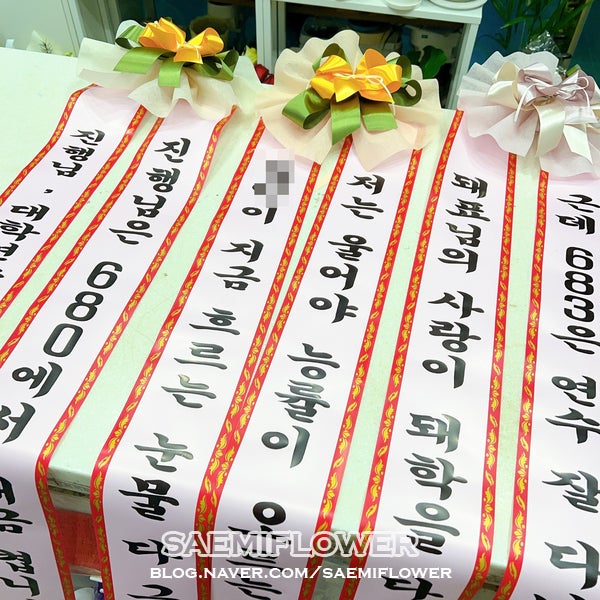 진행님, 대학
진행님은 680에서
이 지금 흐르는 눈물
저는 울어야 능률이
돼표님의 사랑이 돼학을
근데 683은 연수 잘
SAEMIFLOWER
BLOG.NAVER.COM/SAEMIFLOWER